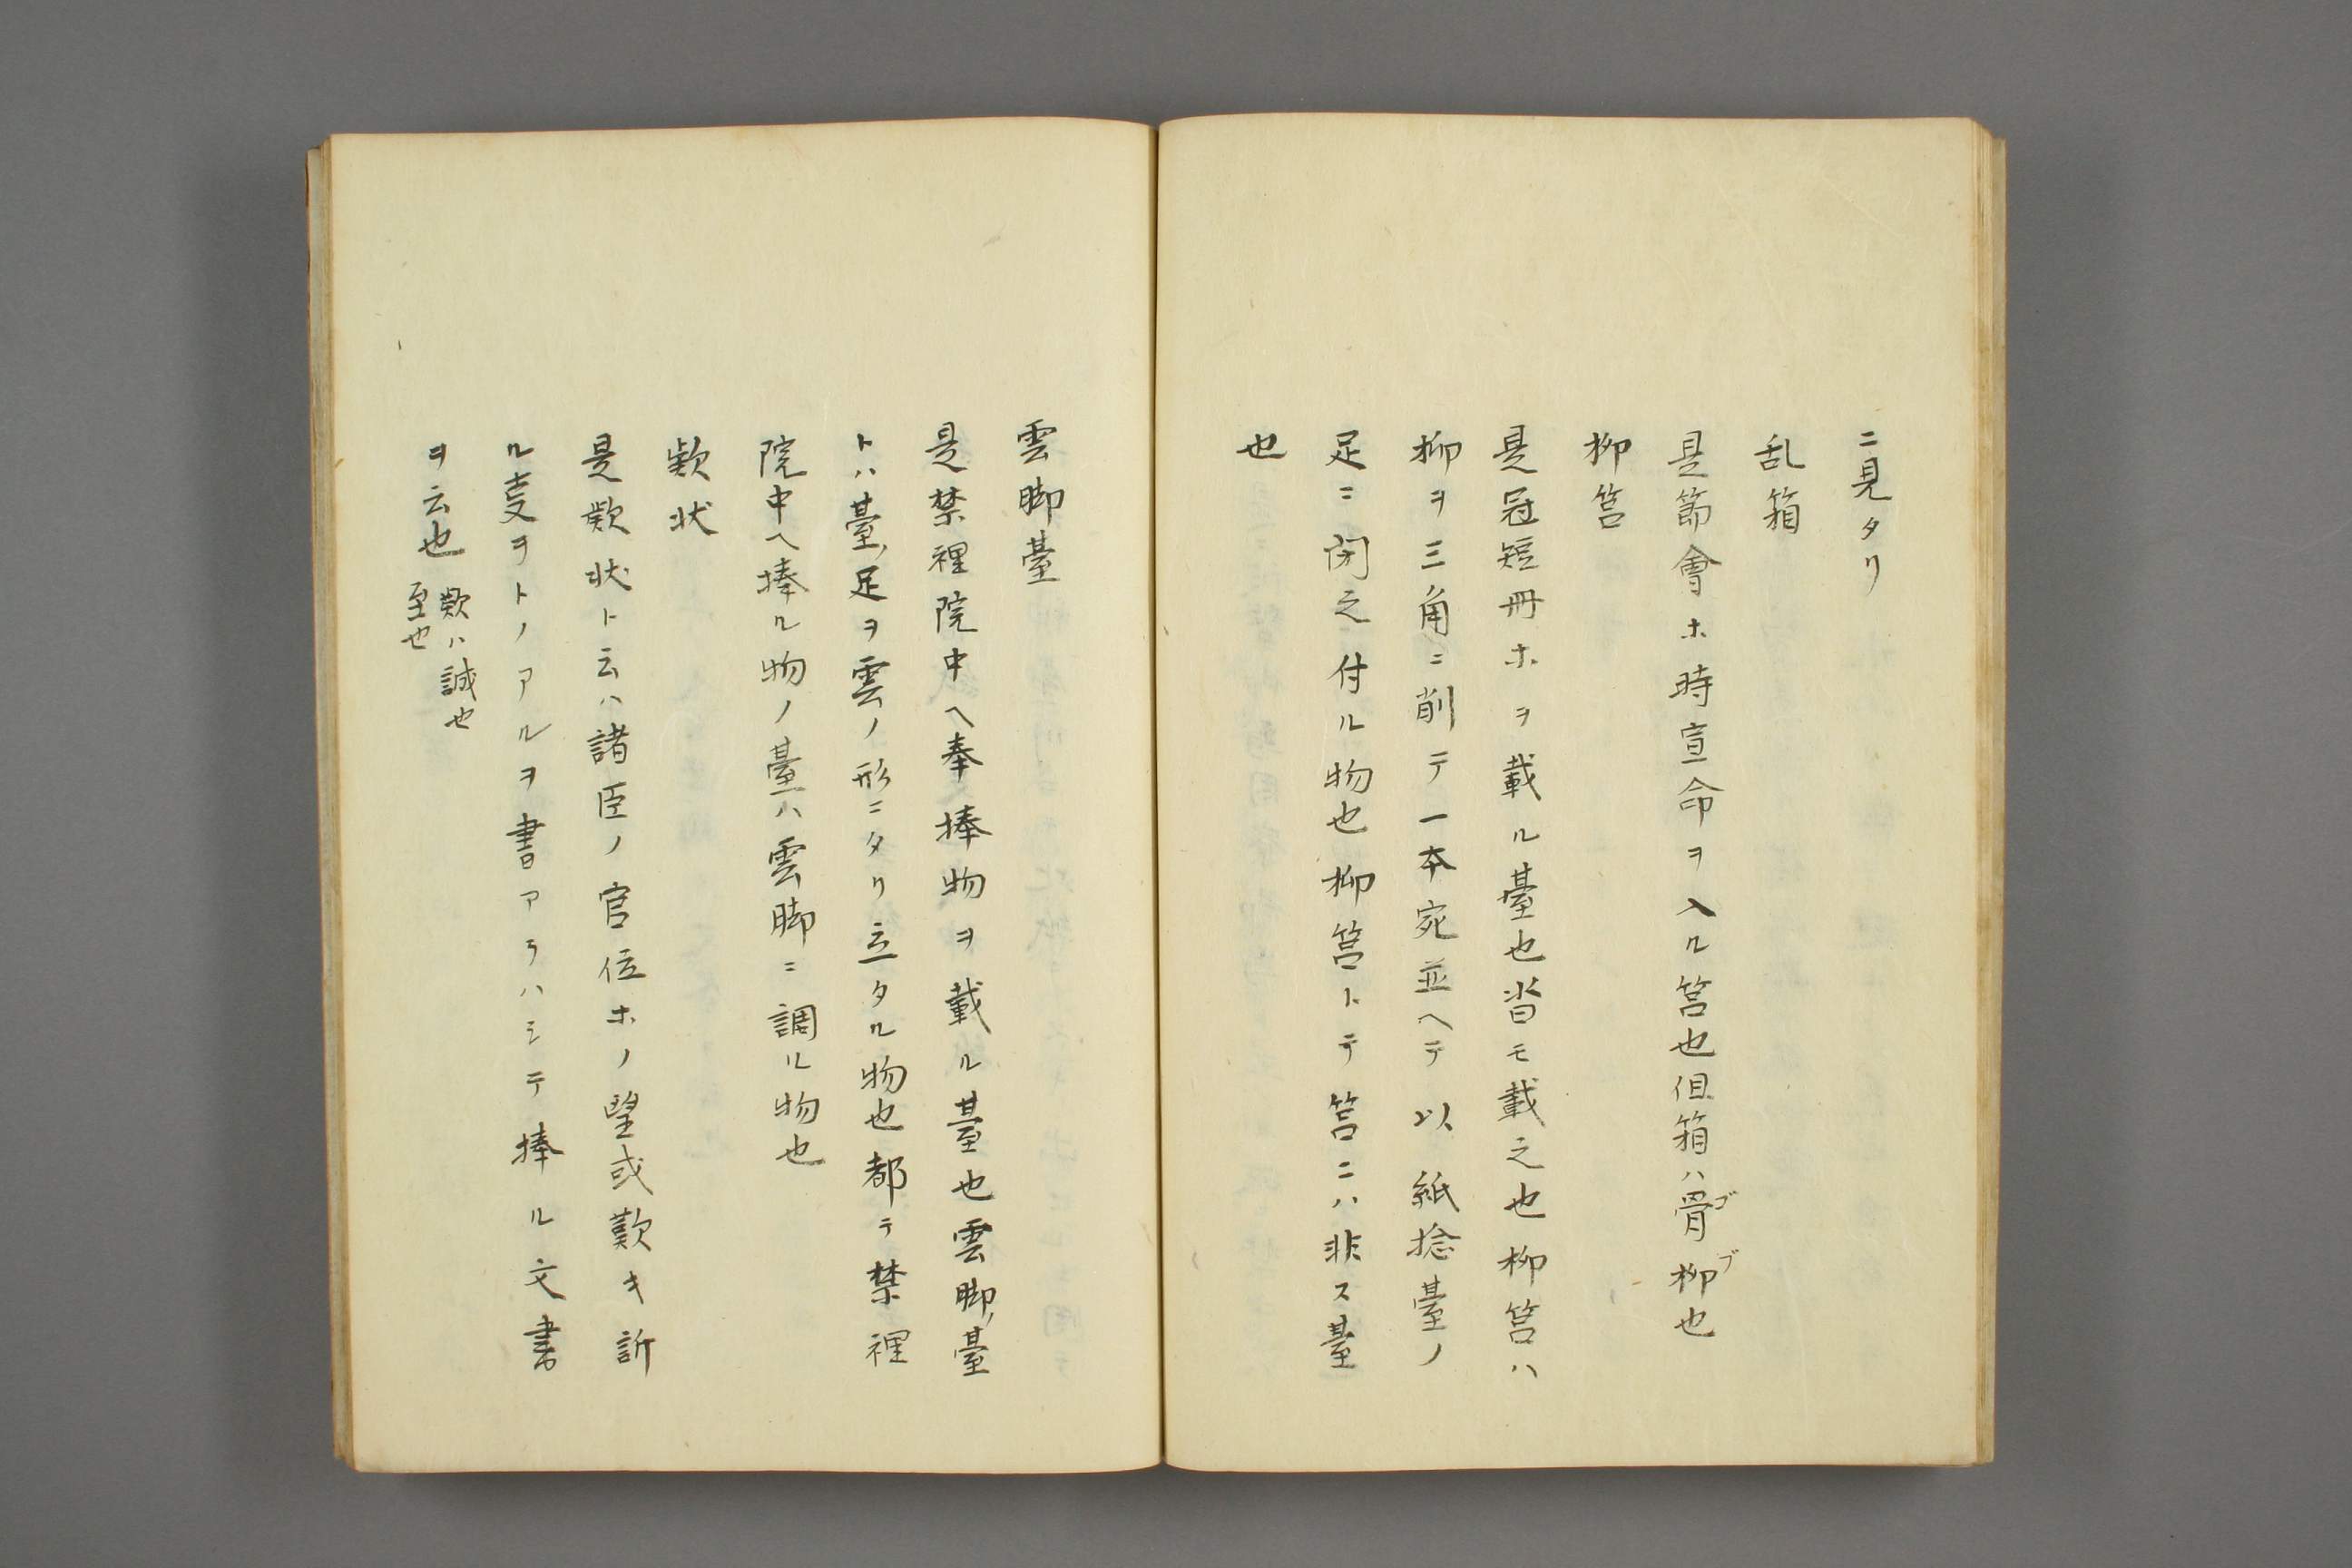 ニ見タリ
乱箱
是節會ホ時宣命ヲ入ル筥也但箱ハ骨柳也
ゴブ
柳筥
是冠短冊ホヲ載ル臺也沓モ載之也柳筥ハ
柳ヲ三角ニ削テ一本宛並ヘテ以紙捻臺ノ
足ニ閉之付ル物也柳筥トテ筥ニハ非ス臺
也
雲脚臺
是禁裡院中ヘ奉捧物ヲ載ル臺也雲脚臺
トハ臺ノ足ヲ雲ノ形ニタリ立タル物也都テ禁裡
院中ヘ捧ル物ノ臺ハ雲脚ニ調ル物也
欵状
是欵状ト云ハ諸臣ノ官位ホノ望或歎キ訴
ル叓ヲトノアルヲ書アラハシテ捧ル文書
ヲ云也
欵ハ誠也
至也